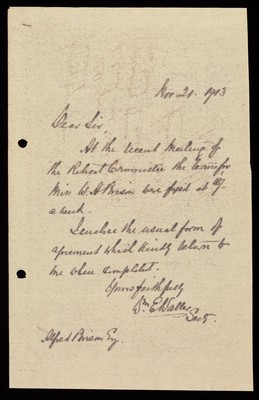 Nov 21. 1913
Dear Sir,
At the recent Meeting of
the Retreat Committee the terms for
Miss W. A. Brison were fixed at
a week.
I enclose the usual form of
agreement which kindly return to
me when completed.
Yours faithfully
Wm E Waller
Secty.
Alfred Brison Esq.